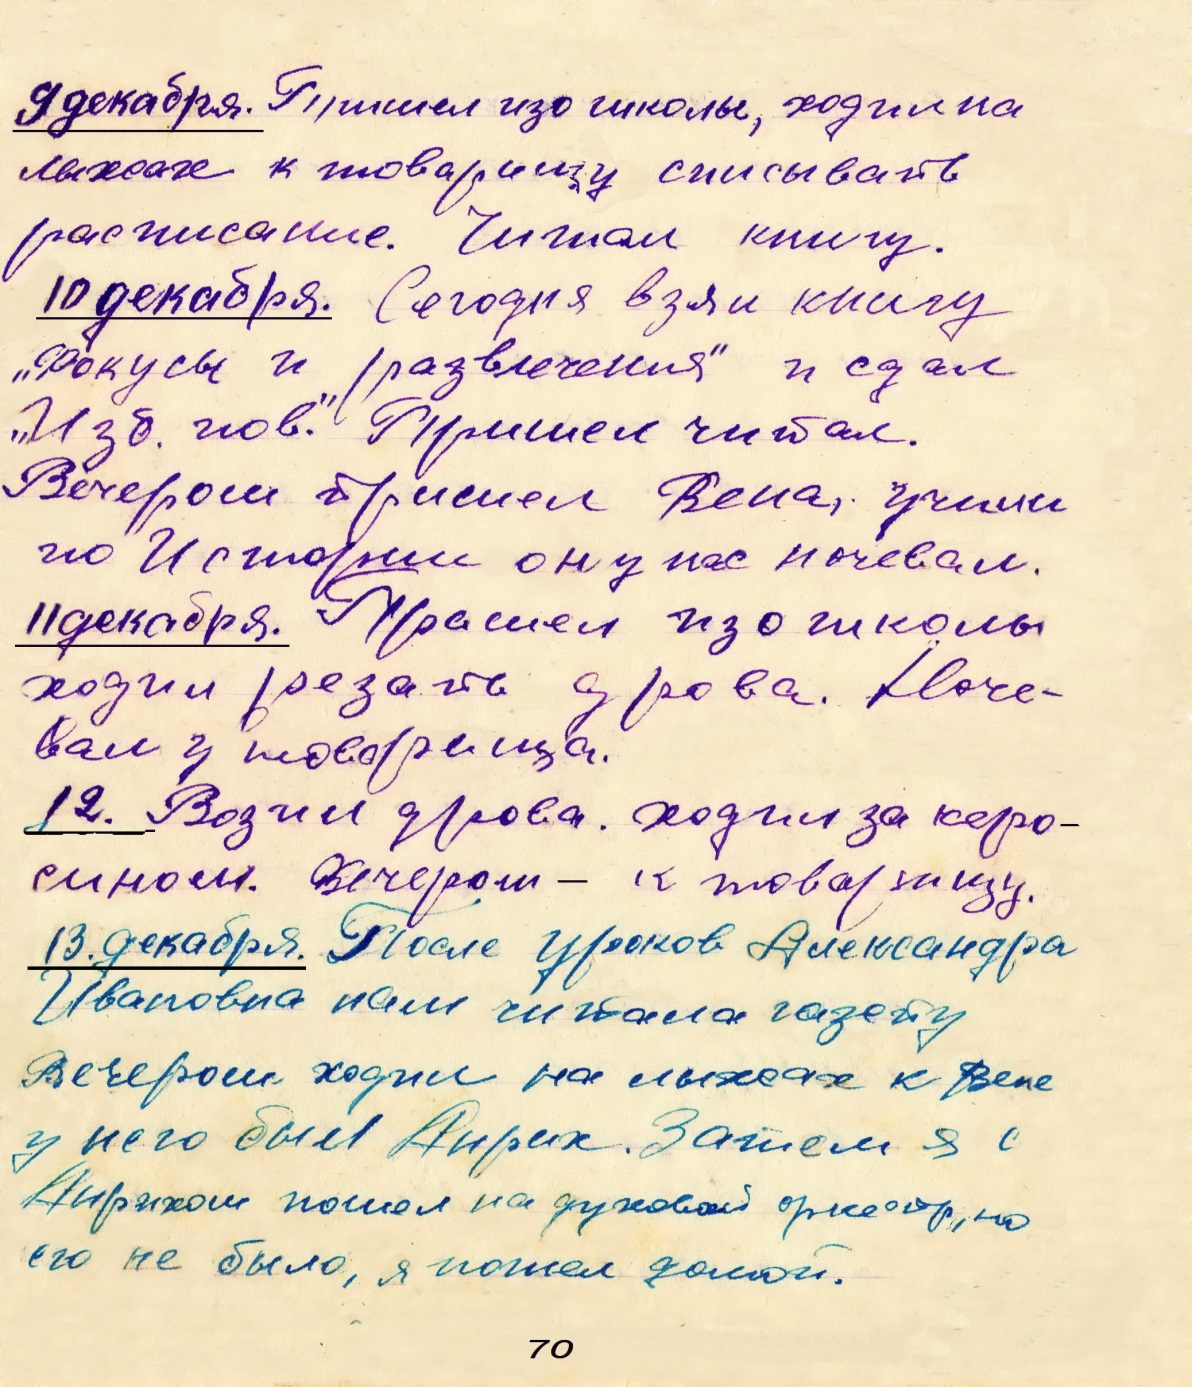 9 декабря. Пришел изо школы, ходил на
лыжах к товарищу списывать
расписание. Читал книгу.
10 декабря. Сегодня взял книгу
„Фокусы и развлечения" и сдал
„Изб. пов." Пришел читал.
Вечером пришел Вена, учили
по Истории он у нас ночевал.
11 декабря. Пришел изо школы
ходил резать дрова. Ноче-
вал у товарища.
12. Возил дрова. ходил за керо-
сином. Вечером – к товарищу.
13. декабря. После уроков Александра
Ивановна нам читала газету
Вечером ходил на лыжах к Вене
у него был Анрик. Затем я с
Анриком пошел на духовой оркестр, но
его не было, я пошел домой.
70